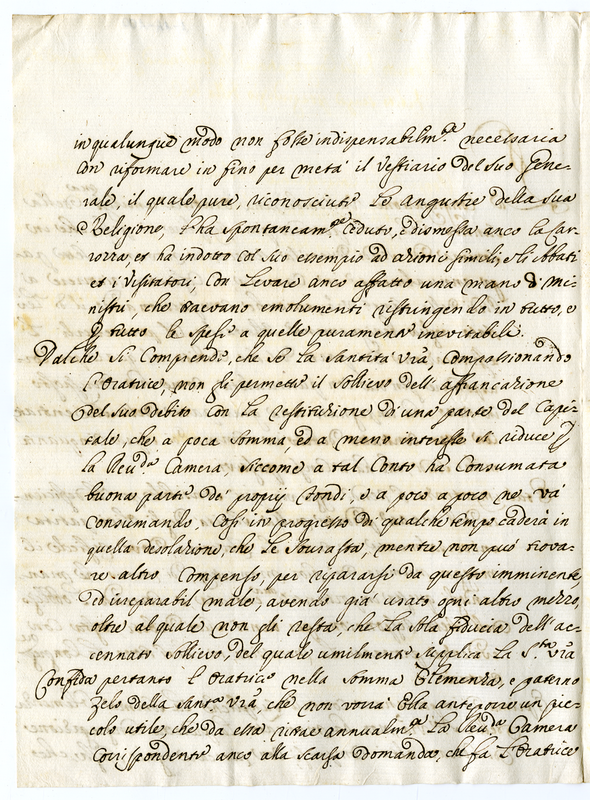 in qualunque modo non fosse indispensabilm.te necessaria
con riformare in sino per metà il Vestiario del suo Gene-
rale, il quale pure, riconosciute le angustie della sua
Religione, l'ha spontaneam.te ceduto, e dismessa anco la Car-
rozza, et ha indotto col suo essempio ad azioni simili gli Abbati
et i Visitatori, con levare anco affatto una mano di mi-
nistri, che traevano emolumenti restringendo in tutto, e
p tutto le spese a quelle puramente inevitabili.
Dalche si comprende, che se la Santità Vrã, compassionando
l'Oratrice, non gli permette il sollievo dell'affrancazione
del suo debito con la restituzione di una parte del Capi-
tale, che a poca somma, ed a meno interesse si riduce p
la Reu.da Camera, siccome a tal conto ha consumata
buona parte de' proprij fondi, e a poco a poco ne và
consumando, così in progresso di qualche tempo caderà in
quella desolazione, che le sourasta, mentre non può trova-
re altro compenso, per ripararsi da questo imminente,
ed irreparabil male, avendo già usato ogni altro mezzo,
oltre al quale non gli resta, che la sola fiducia dell'ac-
cennato sollievo, del quale umilmente supplica la S.tà Vrã
Confida pertanto l'Oratrice nella somma Clemenza, e paterno
Zelo della Sant.à Vrã, che non vorrà Ella anteporre un pic-
colo utile, che da essa ritrae annualm.te la Reu.da Camera
Corrispondente anco alla scarsa domanda, che fa l'Oratrice